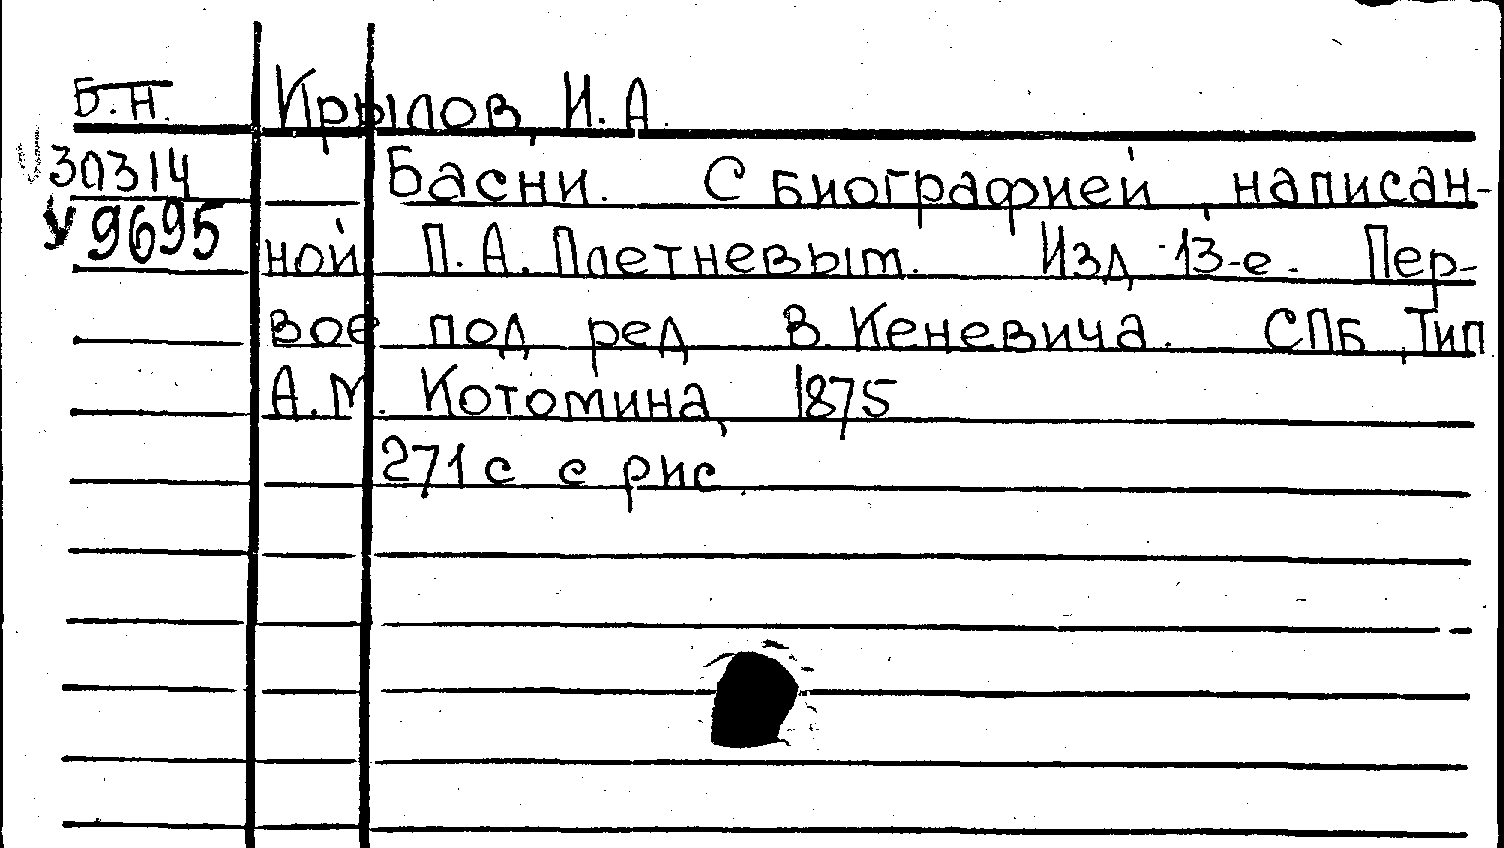 Б.Н.
Крылов, И.А.
30314
У9695
Басни. С биографией, написан-
ной П.А. Плетневым. Изд. 13-е. Пер-
вое под ред. В. Кеневича. СПБ, Тип
А.М. Котомина, 1875
271 с с рис.